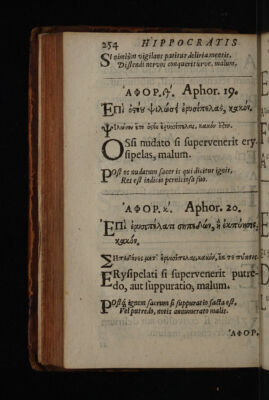 254 HIPPOCRATIS
Si nimiùm vigilans patitur deliriamentis,
Distendi nervos conqueritúrve, malum.
ἈΦΟΡ. ιθ'. Aphor. 19.
ἘΠὶ ὀστέου ψιλώσει ἐρυσίπελας, κακόν.
OSsi nudato si supervenerit ery-
sipelas, malum.
Post os nudatum sacer is qui dicitur ignis,
Res est indicio perniciosa suo.
ἈΦΟΡ. κ'. Aphor. 20.
ἘΠὶ ἐρυσιπέλατι σηπεδὼν, ἢ ἐκπύησις,
κακόν.
ERysipelati si supervenerit putre-
do, aut suppuratio, malum.
Postq; ignem sacrum si suppuratio facta est,
Vel putredo, malis annumerato malis.
ἈΦΟΡ.